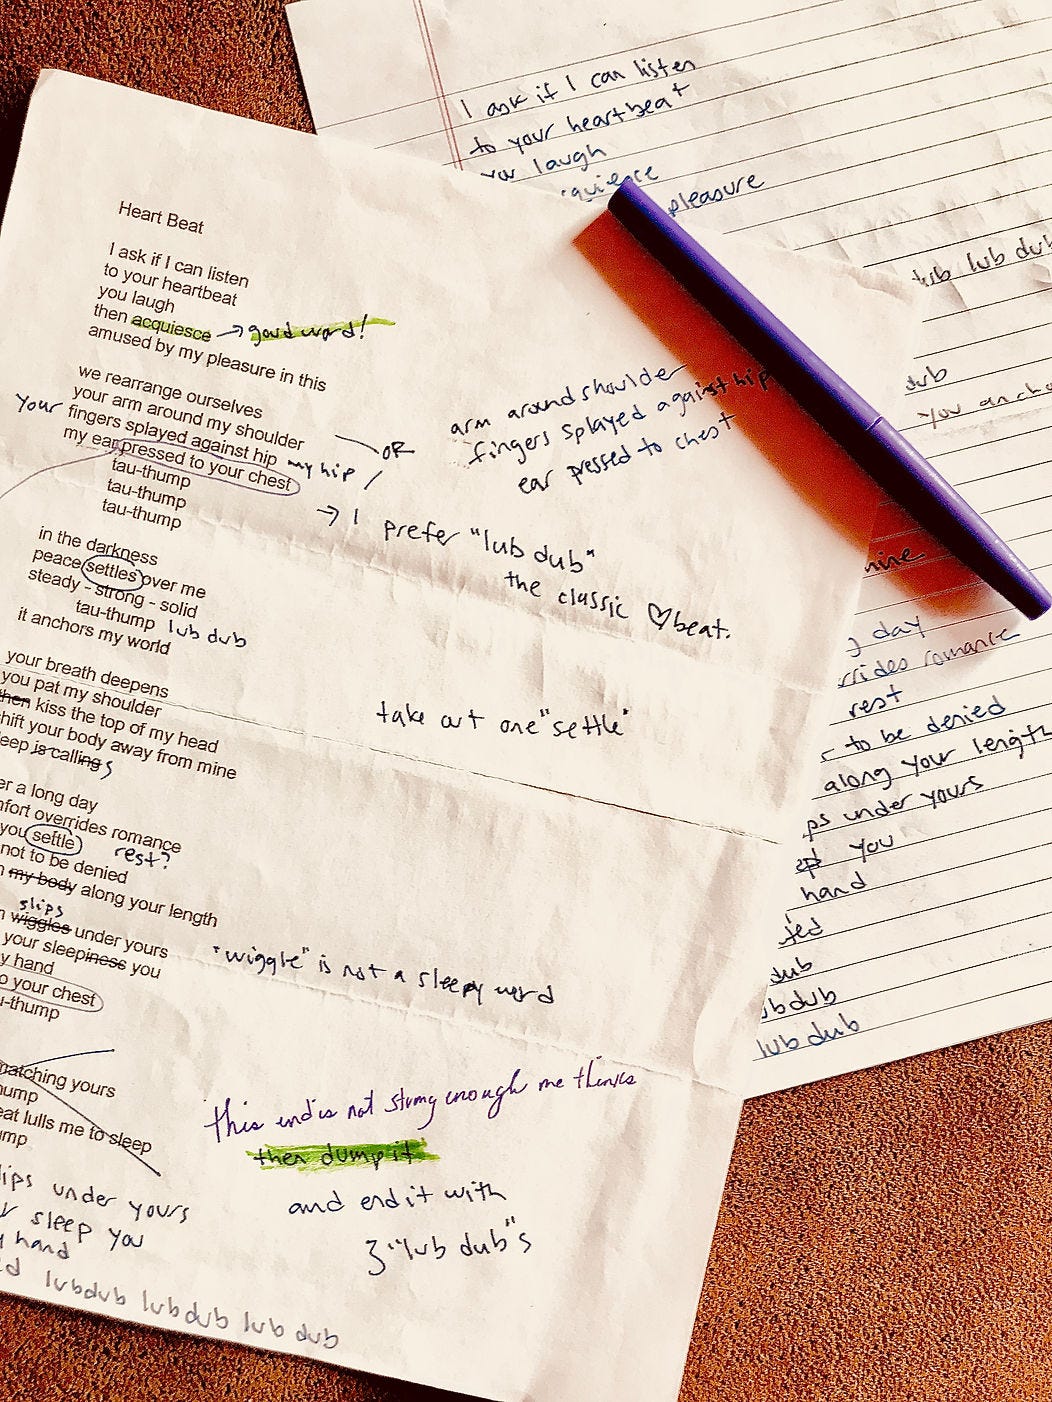 I ask if I can listen
to your heartbeat
you laugh
pleasure
lub lub dub
dub
you
mine
day
romance
rest
to be denied
along your length
under yours
you
hand
dub
lub dub
Heart Beat
I ask if I can listen
to your heartbeat
you laugh
then acquiesce → good word!
amused by my pleasure in this
we rearrange ourselves
your arm around my shoulder
your fingers splayed against hip my hip
my ear pressed to your chest
tau-thump
tau-thump
tau-thump
OR
arm around shoulder
fingers splayed against hip
ear pressed to chest
→ I prefer "lub dub"
the classic ♡beat.
in the darkness
peace settles over me
steady - strong - solid
tau-thump lub dub
it anchors my world
take out one "settle"
your breath deepens
you pat my shoulder
then kiss the top of my head
shift your body away from mine
is calling s
a long day
overrides romance
you settle rest?
not to be denied
my body along your length
slips
wiggles under yours
your sleepiness you
hand
your chest
"wiggle" is not a sleepy word
matching yours
lulls me to sleep
this end is not strong enough me thinks
then dump it
and end it with
3 "lub dub"s
under yours
sleep you
hand
lubdub lubdub lub dub